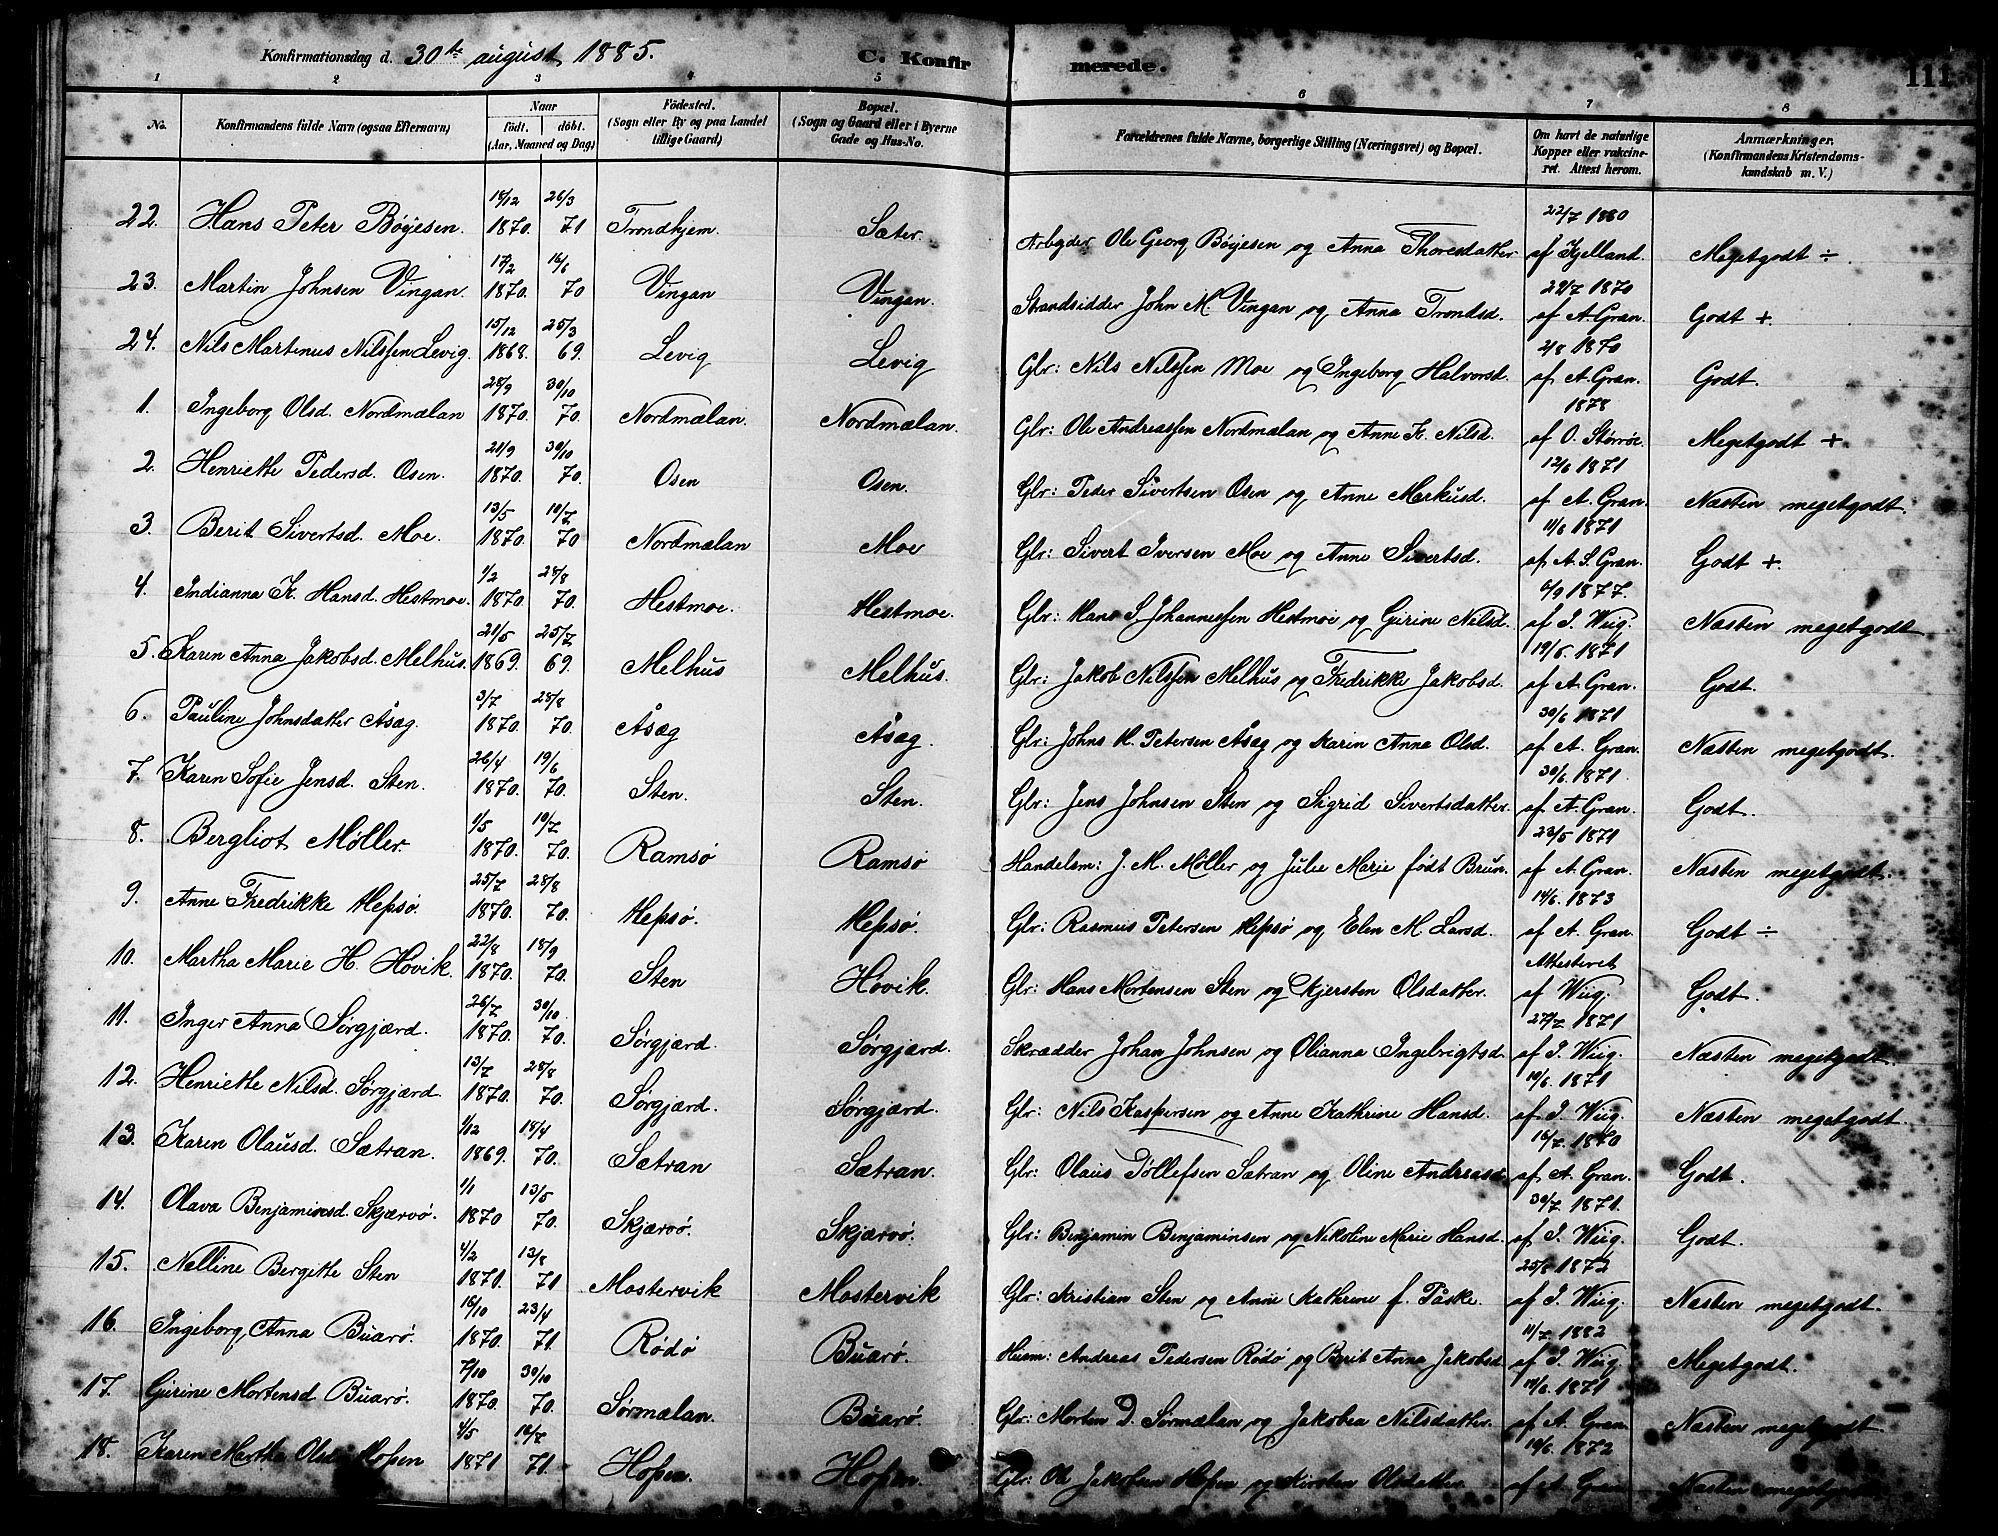 Konfirmationsdag d. 30te august 1885.
C. Konfirmerede.
111
1 2 3 4 5 6 7 8
No. | Konfirmandens fulde Navn (ogsaa Efternavn) | Naar födt. döbt. (Aar, Maaned og Dag) | Födested. (Sogn eller By og paa Landet tillige Gaard) | Bopæl. (Sogn og Gaard eller i Byerne Gade og Hus-No. | Forældrenes fulde Navne, borgerlige Stilling (Næringsvei) og Bopæl. | Om havt de naturlige Kopper eller vakcineret. Attest herom. | Anmærkninger. (Konfirmandens Kristendomskundskab m. V.)
22. Hans Peter Böyesen. 18/12 1870. 26/3 71 Trondhjem. Sæter. Arbejder Ole Georg Böyesen og Anna Thoresdatter 22/7 1880 af Kjelland. Megetgodt ÷
23. Martin Johnsen Vingan. 17/2 1870. 16/6 70 Vingan Vingan. Strandsidder John M. Vingan og Anna Trondsd. 22/7 1870 af A. Gran. Godt +
24. Nils Martinus Nilssen Levig. 15/12 1868. 25/3 69. Levig Levig Glr: Nils Nilssen Moe og Ingeborg Halvorsd. 2/8 1870 af A. Gran. Godt
1. Ingeborg Olsd. Nordmælan 28/9 1870. 30/10 70. Nordmælan. Nordmælan. Glr: Ole Andreassen Nordmælan og Anne K. Nilsd. 1878 af O. Störröe. Megetgodt +
2. Henriette Pedersd. Osen. 21/9 1870. 30/10 70. Osen Osen. Glr: Peder Sivertsen Osen og Anne Markusd. 12/6 1871 af A. Gran. Næsten megetgodt.
3. Berit Sivertsd. Moe. 13/5 1870. 10/7 70 Nordmælan Moe Glr: Sivert Iversen Moe og Anne Sivertsd. 11/6 1871 af A. S. Gran. Godt +
4. Indianna K. Hansd. Hestmoe. 1/2 1870. 28/8 70. Hestmoe. Hestmoe. Glr: Hans S. Johannessen Hestmoe og Gurine Nilsd. 6/9 1877. af I. Wüg. Næsten megetgodt
5. Karen Anna Jakobsd. Melhus. 21/5 1869. 25/7 69. Melhus Melhus. Glr: Jakob Nilssen Melhus og Fredrikke Jakobsd. 19/6. 1871 af A. Gran. Godt.
6. Pauline Johnsdatter Åsæg. 3/7 1870. 28/8 70. Åsæg Åsæg. Glr: Johns H. Petersen Åsæg og Karen Anna Olsd. 30/6 1871 af A. Gran. Næsten megetgodt.
7. Karen Sofie Jensd. Sten. 26/4 1870. 19/6 70. Sten. Sten. Glr: Jens Johnsen Sten og Sigrid Sivertsdatter. 30/6. 1871. af A. Gran. Godt.
8. Bergliot Möller. 9/5 1870. 10/7 70. Ramsö Ramsö Handelsm: J. M. Möller og Julie Marie født Brun. 23/5 1871 af A. Gran. Næsten megetgodt.
9. Anne Fredrikke Hepsö. 25/7 1870. 28/8 70. Hepsö. Hepsö. Glr: Rasmus Petersen Hepsö og Elen M. Larsd. 14/6. 1873 af A. Gran. Godt ÷
10. Martha Marie H. Hovik. 22/8 1870. 18/9 70. Sten Hovik. Glr: Hans Mortensen Sten og Kjersten Olsdatter. Attesteret af Wüg. Godt.
11. Inger Anna Sörgjærd. 26/7 1870. 30/10 70. Sörgjærd. Sörgjærd. Skrædder Johan Johnsen og Olianna Ingebrigtsd. 27/7 1871 af I. Wüg. Næsten megetgodt.
12. Henriette Nilsd. Sörgjærd. 13/7 1870. 28/8 70. Sörgjærd. Sörgjærd. Glr: Nils Kaspersen og Anne Kathrine Hansd. 10/6. 1871 af I. Wüg. Næsten megetgodt.
13. Karen Olausd. Sætran. 1/12 1869. 18/4 70. Sætran Sætran. Glr: Olaus Töllefsen Sætran og Oline Andreasd. 16/7 1870 af A. Gran. Godt.
14. Olava Benjaminsd. Skjærvö. 1/1 1870 13/5 70. Skjærvö. Skjærvö. Glr: Benjamin Benjaminsen og Nikoline Marie Hansd. 30/7 1871. af I. Wüg. Godt.
15. Nelline Bergitte Sten 4/2 1870. 13/8 71 Mostervik Mostervik Glr: Kristian Sten og Anne Kathrine f. Påske. 25/8 1872 af I. Wüg. Næsten megetgodt.
16. Ingeborg Anna Buarö. 16/10 1870. 23/4 71. Rödö Buarö. Huusm: Andreas Pedersen Rödö og Brit Anna Jakobsd. 11/7. 1882 af I. Wüg. Megetgodt.
17. Gurine Mortensd Buarö. 7/10 1870. 30/10 70. Sörmælan. Buarö. Glr: Morten D. Sörmælen og Jakobea Nilsdatter. 14/6. 1871 af A. Gran. Næsten megetgodt.
18. Karen Martha Hopen 4/5 1871 16/7 71. Hopen. Hopen. Glr: Ole Jakobsen Hopen og Kirsten Olsdatter 19/6. 1872 af A. Gran Næsten megetgodt.